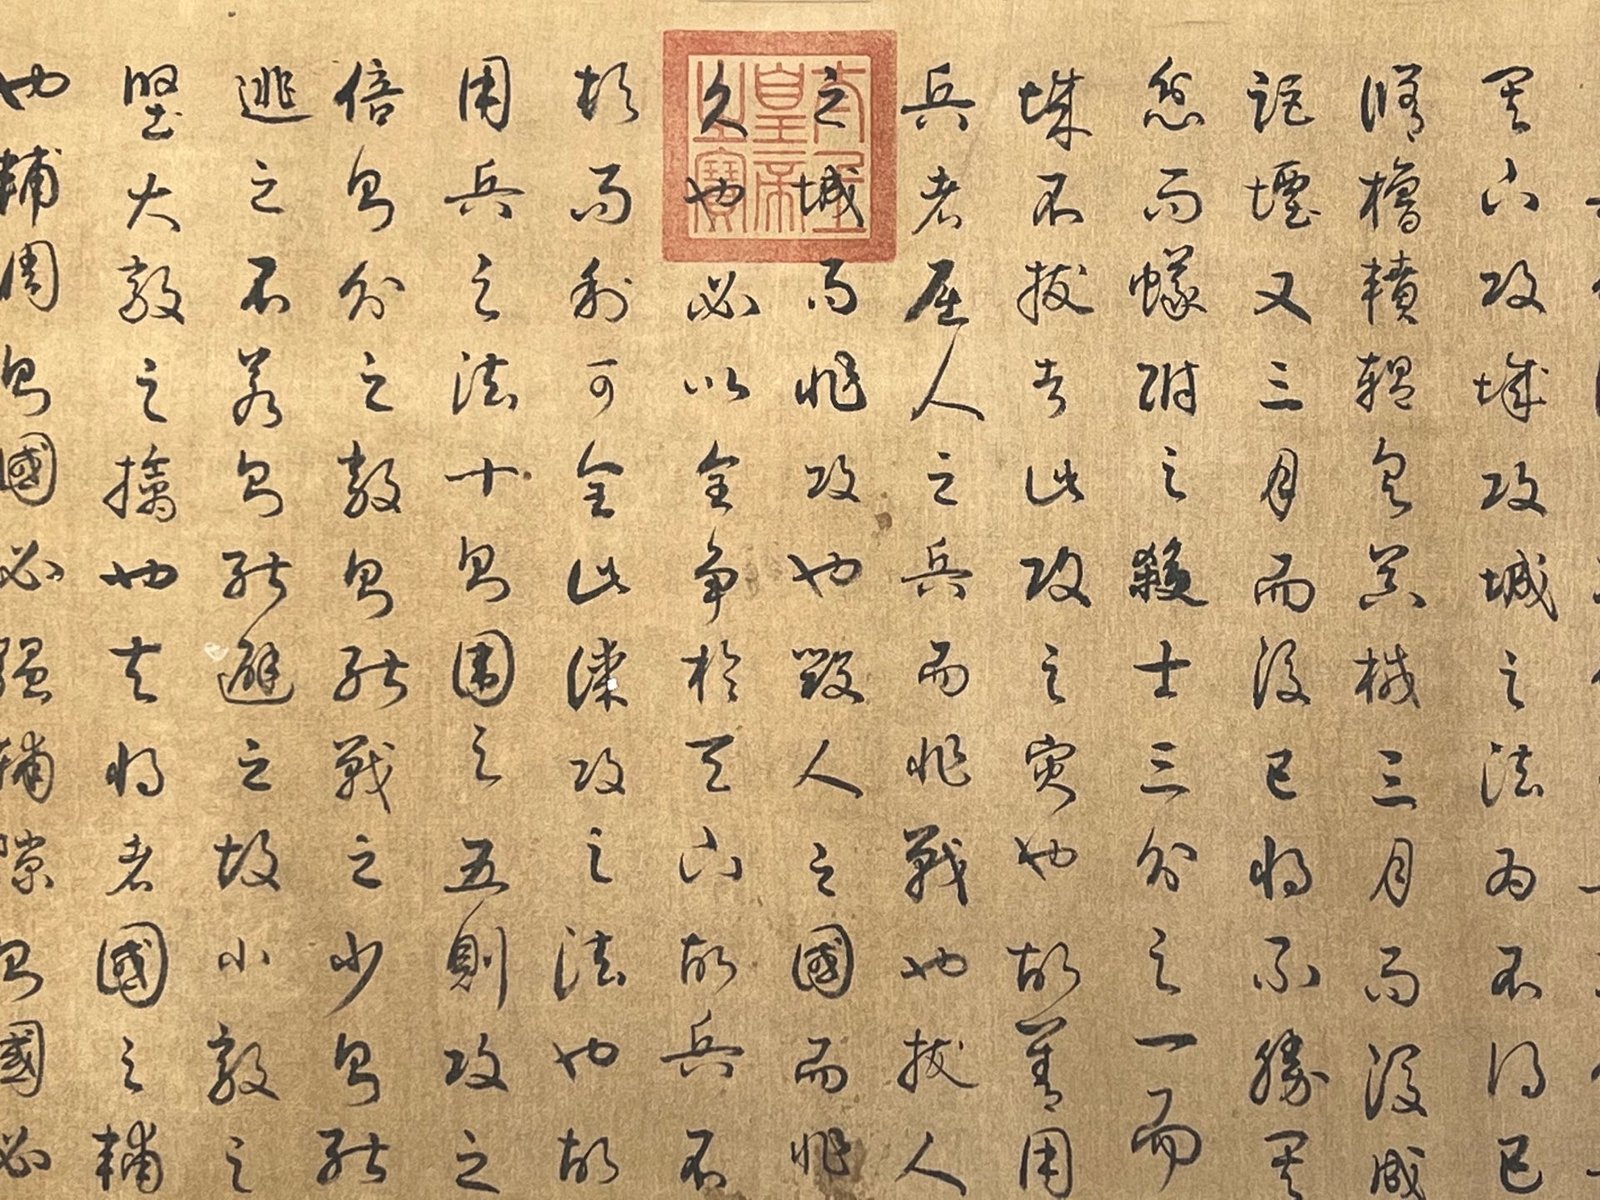 其下攻城攻城之法為不得已
修櫓轒轀具器械三月而後成
距堙又三月而後已將不勝其
忿而蟻附之殺士三分之一而
城不拔者此攻之災也故善用
兵者屈人之兵而非戰也拔人
之城而非攻也毀人之國而非
久也必以全爭於天下故兵不
頓而利可全此謀攻之法也故
用兵之法十則圍之五則攻之
倍則分之敵則能戰之少則能
逃之不若則能避之故小敵之
堅大敵之擒也夫將者國之輔
也輔周則國必強輔隙則國必
皇帝
之寶